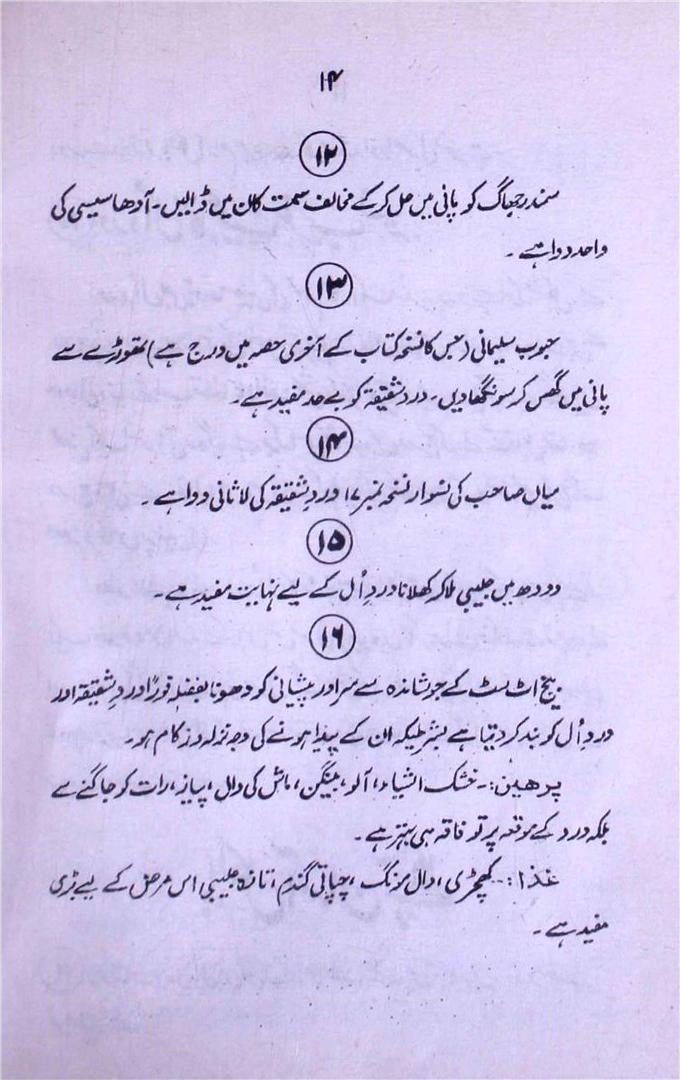 ۱۴
۱۲
سمندر جھاگ کو پانی میں حل کر کے مخالف سمت کان میں ڈالیں۔ آدھا سیسی کی
واحد دوا ہے۔
۱۳
حبوب سلیمانی (جس کا نسخہ کتاب کے آخری حصہ میں درج ہے) تھوڑے سے
پانی میں گھس کر سونگھا دیں۔ درد شقیقہ کو بے حد مفید ہے۔
۱۴
میاں صاحب کی نسوار نسخہ نمبر ۱۷ دردِ شقیقہ کی لاثانی دوا ہے۔
۱۵
دودھ میں جلیبی ملا کر کھلانا دردِ اُل کے لیے نہایت مفید ہے۔
۱۶
بیخ اٹ سٹ کے جوشاندہ سے سر اور پیشانی کو دھونا بفضلہ فوراً دردِ شقیقہ اور
دردِ اُل کو بند کر دیتا ہے بشرطیکہ ان کے پیدا ہونے کی وجہ نزلہ و زکام ہو۔
پرھیز:۔ خشک اشیاء، آلو، بینگن، ماش کی دال، پیاز، رات کو جاگنے سے
بلکہ درد کے موقعہ پر تو فاقہ ہی بہتر ہے۔
غذا:۔ کھچڑی، دال مونگ، چپاتی گندم، تازہ جلیبی اس مرض کے لیے بڑی
مفید ہے۔